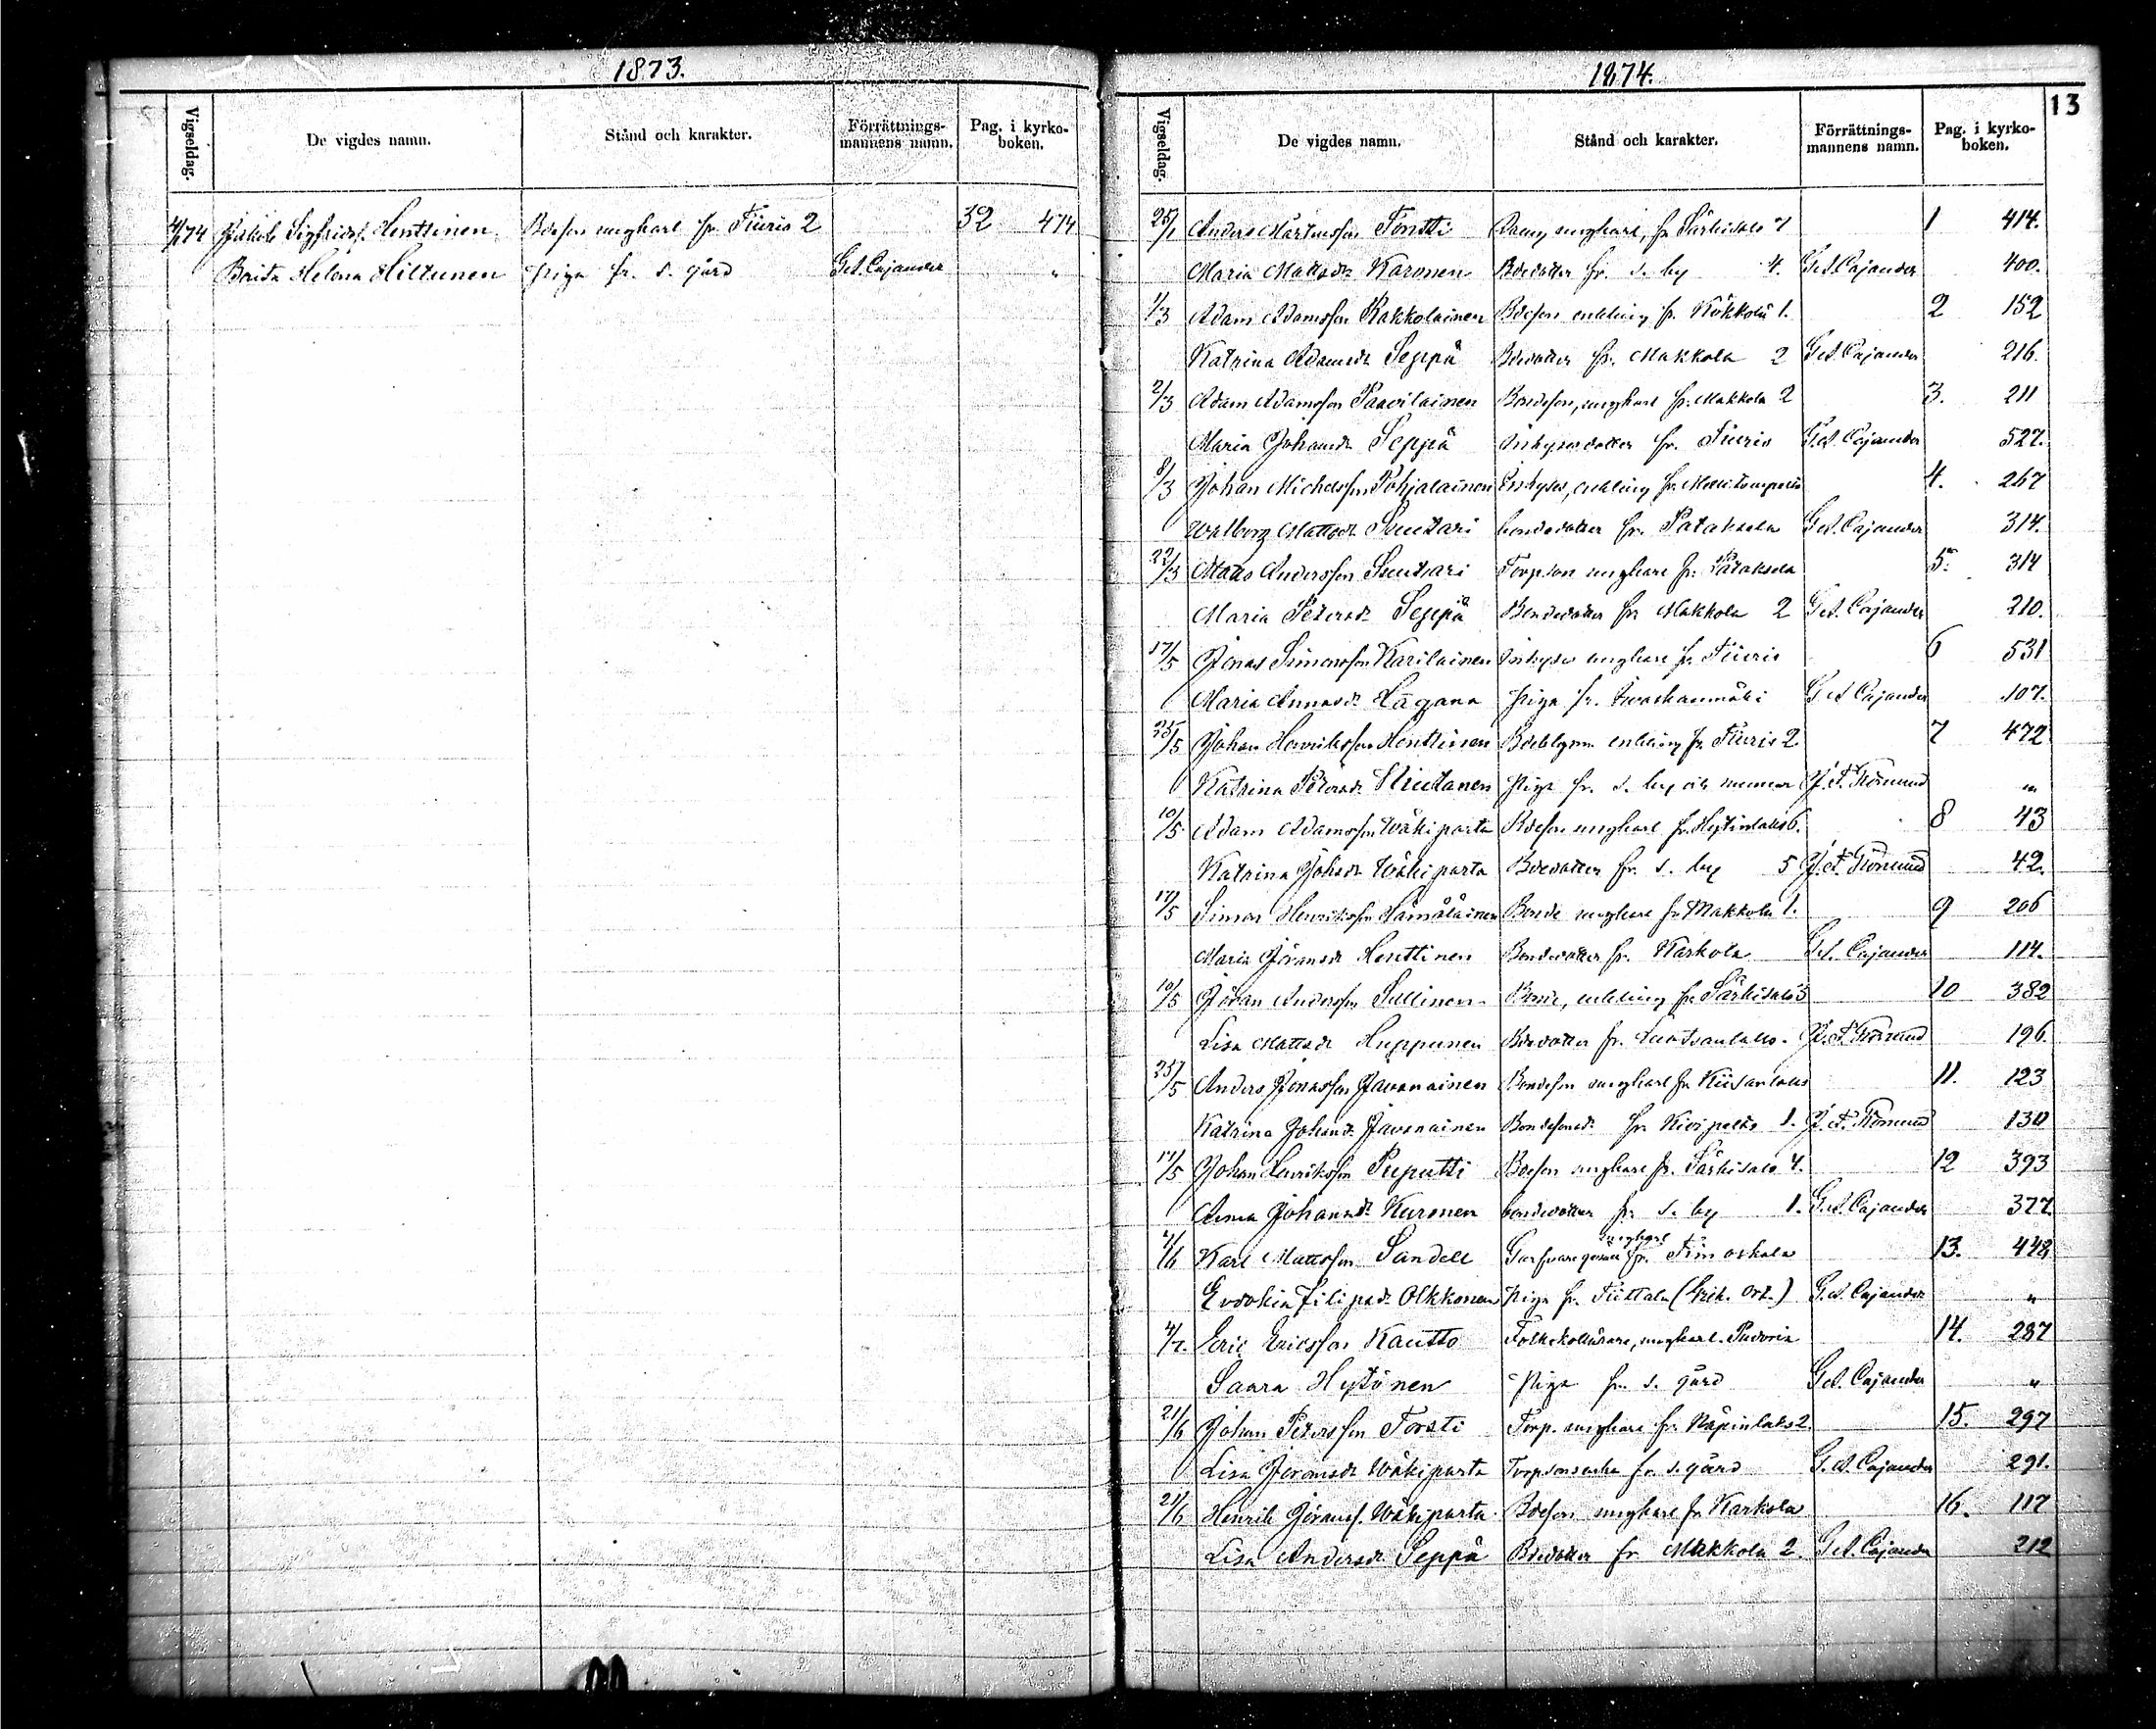 1873.
Vigseldag. De vigdes namn. Stånd och karakter. Förrättnings-mannens namn. Pag. i kyrko-boken.
Jakob Sigfrids. Henttinen Bdeson ungkarl fr. Tiuris 2 32 474
Brita Helena Hiltunen piga fr. s. gård G.A. Cajander "
1874.
13
Vigseldag. De vigdes namn. Stånd och karakter. Förrättnings-mannens namn. Pag. i kyrko-boken.
25/1 Anders Mårtensson Torstti ungkarl, fr Särkisalo 7 1 414.
Maria Mattsdr Karonen Bdedotter fr. s. by 4. G.A. Cajander 400.
1/3 Adam Adamsson Kakkolainen Bdeson enkling fr. Kökkölä 1. 2 152
Katrina Adamsdr Seppä Bdedotter fr. Makkola 2 G.A. Cajander 216.
2/3 Adam Adamsson Paavilainen Bondeson, ungkarl fr. Makkola 2 3. 211
Maria Johansdr Seppä Inhysesdotter fr. Tiuris G.A. Cajander 527.
8/3 Johan Michelsson Pohjalainen Inhyses, enkling fr. 4. 267
Walborg Mattsdr Suutari bondedotter fr. Pataksela G.A. Cajander 314.
22/3 Mats Andersson Suutari Torpson ungkarl fr. Pataksela 5. 314
Maria Petersdr Seppä Bondedotter fr Makkola 2 G.A. Cajander 210.
17/5 Jonas Simonsson Karilainen Inhyses ungkarl fr. Tiuris 6 531
Maria Annasdr Hagana piga fr. Iwaskanmäki G.A. Cajander 107.
25/5 Johan Henriksson Henttinen enkling fr. Tiuris 2 7 472
Katrina Petersdr Hiutanen Piga fr. s. by och nummer "
10/5 Adam Adamsson Wäkiparta Bdeson ungkarl fr. Hytinlaks 6. 8 43
Katrina Johsdr Wäkiparta Bdedotter fr. s. by 5 42.
17/5 Simon Henriksson Hämäläinen Bonde ungkarl fr Makkola 1. 9 206
Maria Jöransdr Henttinen Bondedotter fr. Karkola G.A. Cajander 114.
10/5 Jöran Andersson Sullinen Bonde, enkling fr. Särkisalo 5 10 382
Lisa Mattsdr Huppunen Bdedotter fr. 196.
25/5 Anders Jonasson Jäwenäinen Bondeson ungkarl fr Kiisanlaks 11. 123
Katrina Johansdr Jäwenäinen Bondesonsdr fr Kivipelto 1. 130
17/5 Johan Henriksson Puputti Bdeson ungkarl fr. Särkisalo 4. 12 393
Anna Johansdr Kuronen bondedotter fr. s. by 1. G.A. Cajander 377.
ungkarl
Karl Mattsson Sandell fr. Timoskala 13. 448
Evdokia Filipsdr Olkkonen Piga fr. Tiittala (Grek. Ort.) G.A. Cajander "
4/7. Eric Ericsson Kautto Folkskollärare, ungkarl. Pudoria 14. 287
Saara Hytönen Piga fr. s. gård G.A. Cajander "
21/6 Johan Petersson Torsti Torp. ungkarl fr. Käpinlaks 2. 15. 297
Lisa Jöransdr Wäkiparta Torpsonsenka fr. s. gård G.A. Cajander 291.
21/6 Henrik Jöranss. Wäkiparta Bdeson ungkarl fr Karkola 16. 117
Lisa Andersdr Seppä Bdedotter fr. Makkola 2. G.A. Cajander 212